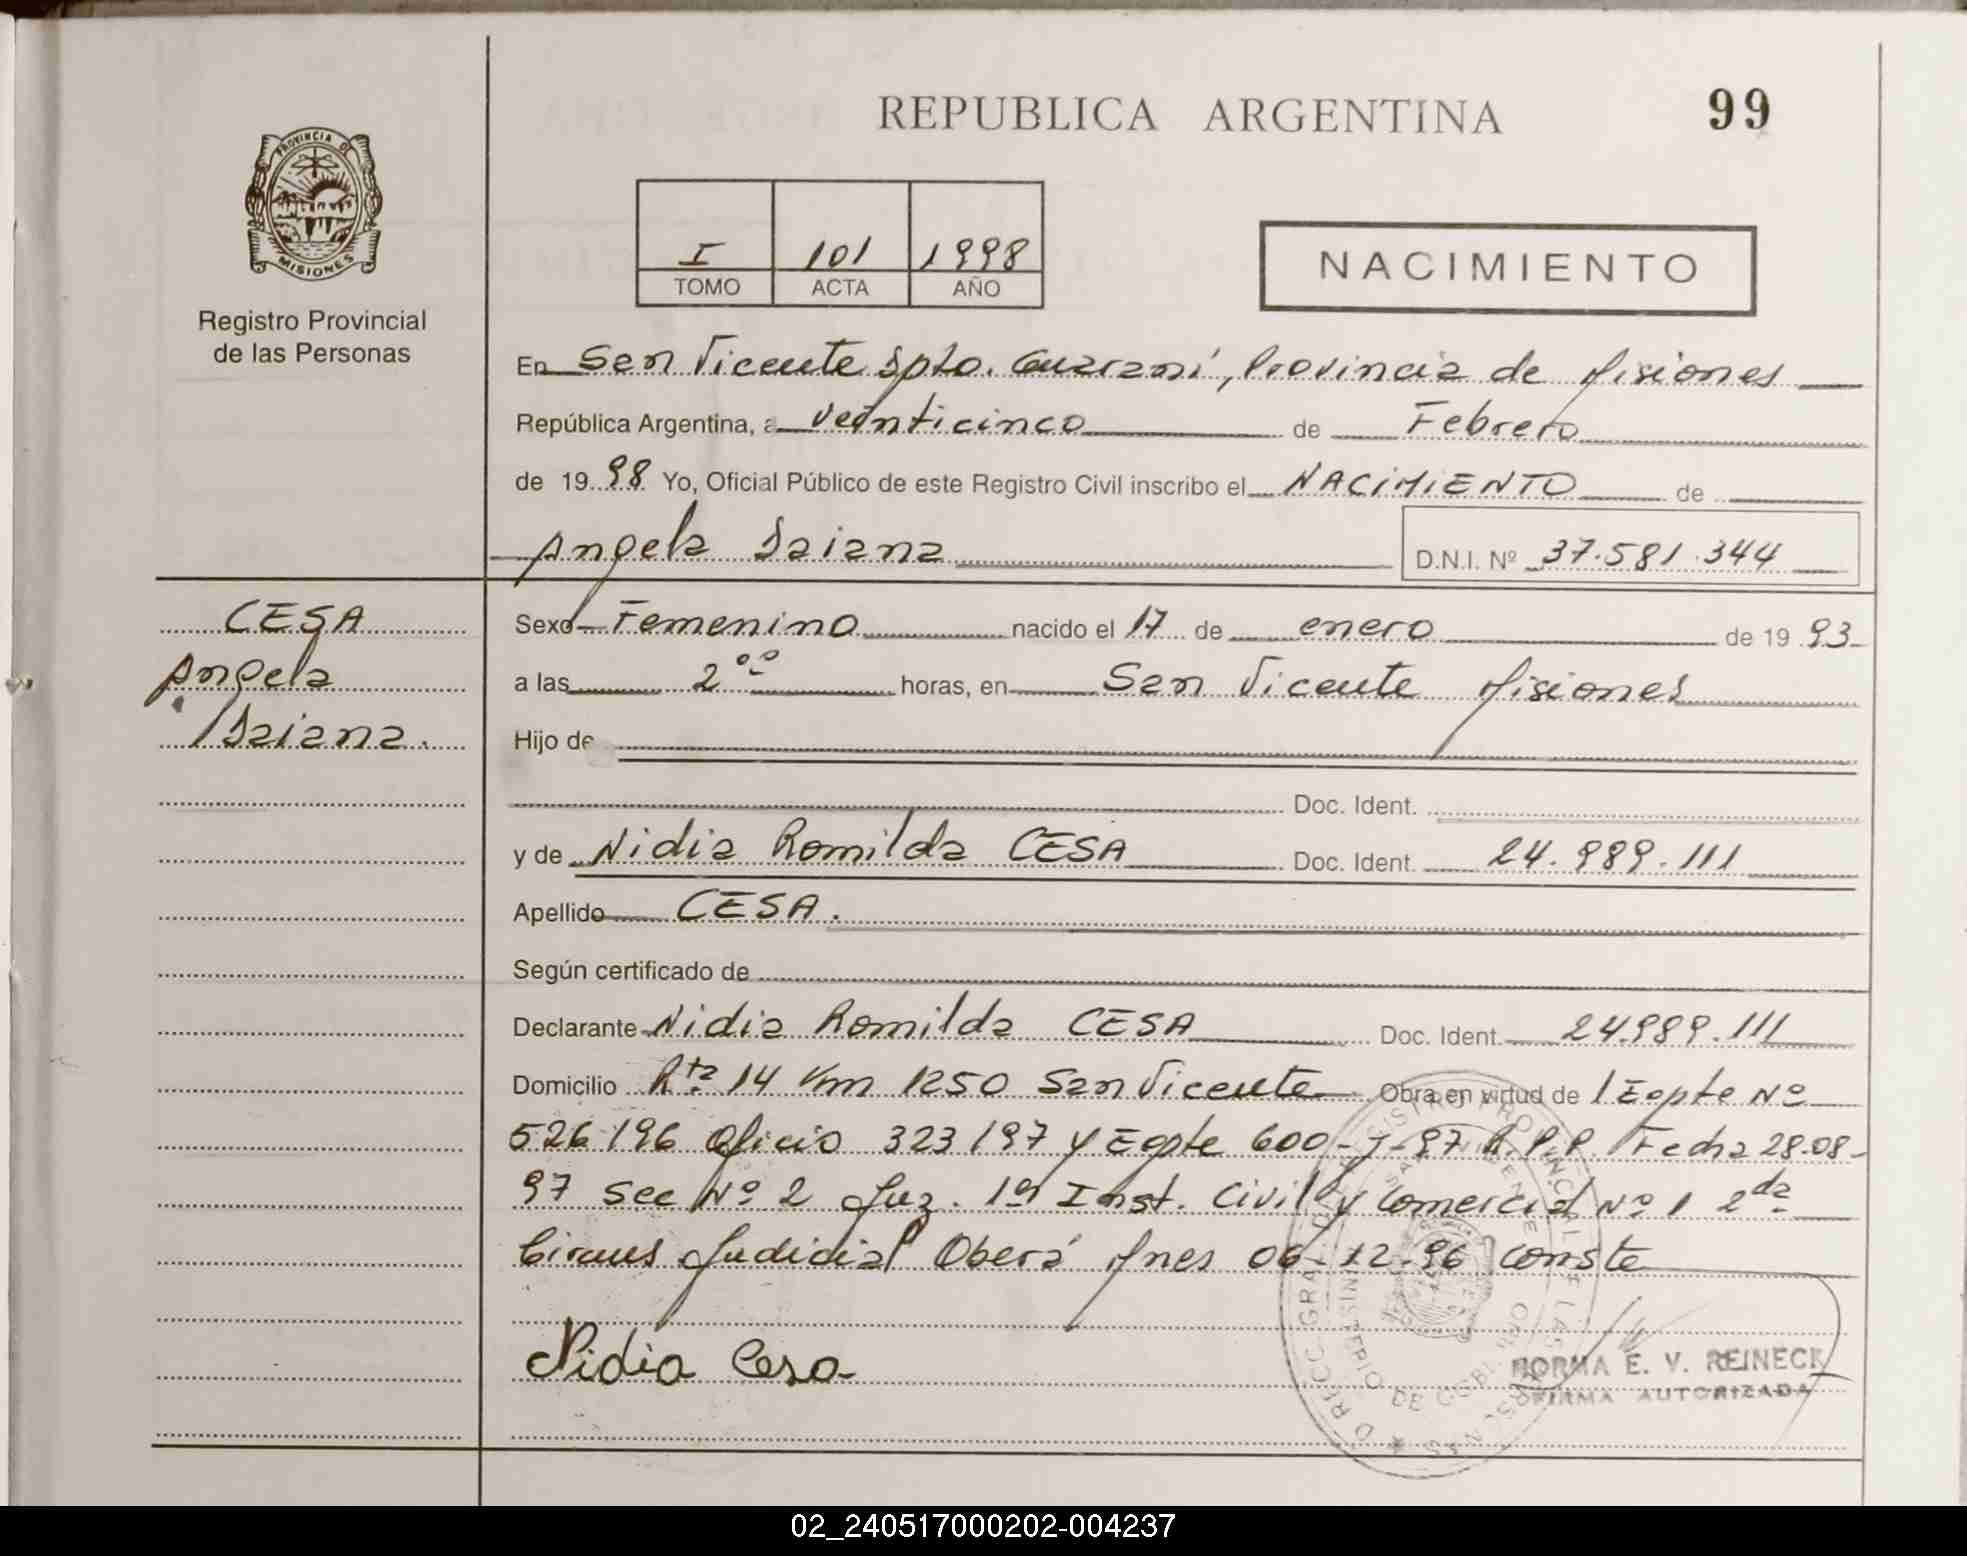 REPUBLICA ARGENTINA
99
PROVINCIA DE
MISIONES
Registro Provincial
de las Personas
I 101 1998
TOMO ACTA AÑO
NACIMIENTO
En San Vicente Dpto. Guaraní, Provincia de Misiones
República Argentina, a veinticinco de Febrero
de 1998 Yo, Oficial Público de este Registro Civil inscribo el NACIMIENTO de
Angela Daiana
D.N.I. Nº 37.581.344
CESA
Angela
Daiana.
Sexo Femenino nacido el 17 de enero de 1993
a las 2ºº horas, en San Vicente Misiones
Hijo de
Doc. Ident.
y de Nidia Romilda CESA Doc. Ident. 24.989.111
Apellido CESA.
Según certificado de
Declarante Nidia Romilda CESA Doc. Ident. 24.989.111
Domicilio Rta 14 Km 1250 San Vicente Obra en virtud de / Expte Nº
526/96 Oficio 323/97 y Expte 600-J-97 R.P.P. Fecha 28-08-
97 Sec Nº 2 Juz. 1ª Inst. Civil y Comercial Nº 1 2da
Circuns Judicial Oberá Mnes 06-12-96 conste
Nidia Cesa
NORMA E. V. REINECK
FIRMA AUTORIZADA
02_240517000202-004237